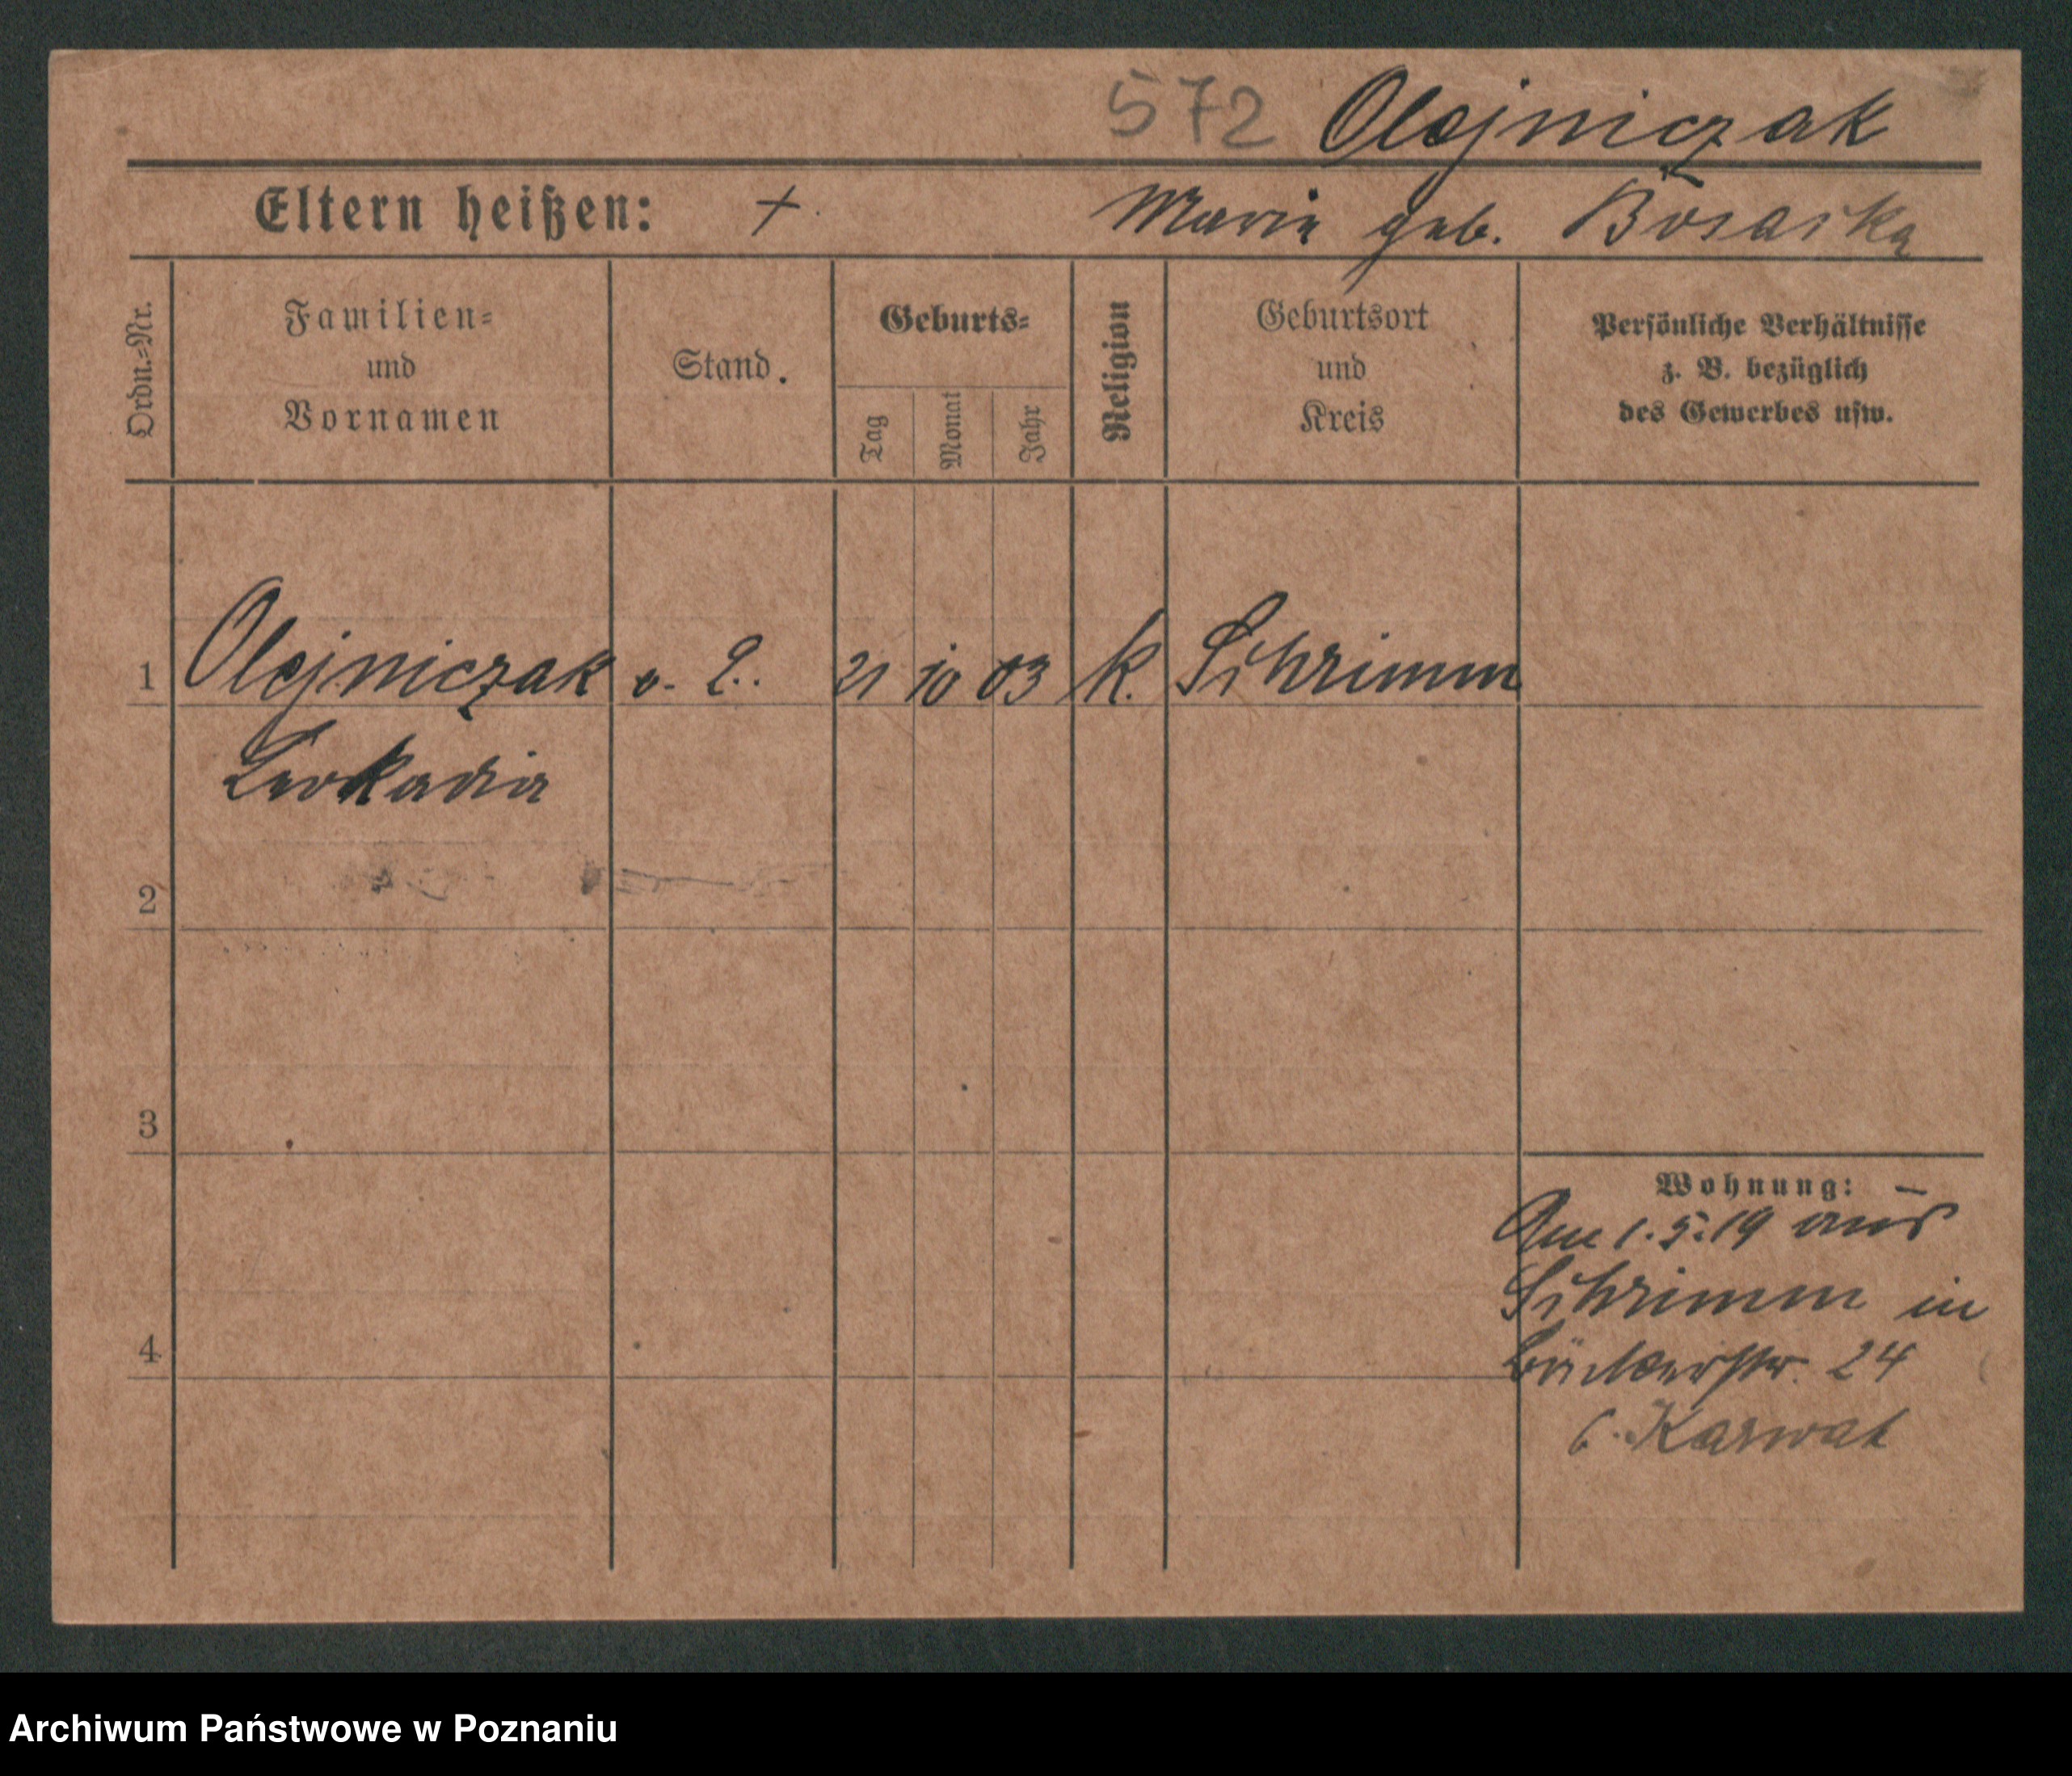 572 Olejniczak
Eltern heißen: + Maria geb. Bosacka
Ordn.=Nr.
Familien=
und
Vornamen
Stand.
Geburts=
Tag
Monat
Jahr
Religion
Geburtsort
und
Kreis
Persönliche Verhältnisse
z. B. bezüglich
des Gewerbes usw.
1 Olejniczak 21 10 03 k. Schrimm
Leokadia
2
3
4
Wohnung:
Am 1.5.19 aus
Schrimm in
24
Karwat
Archiwum Państwowe w Poznaniu